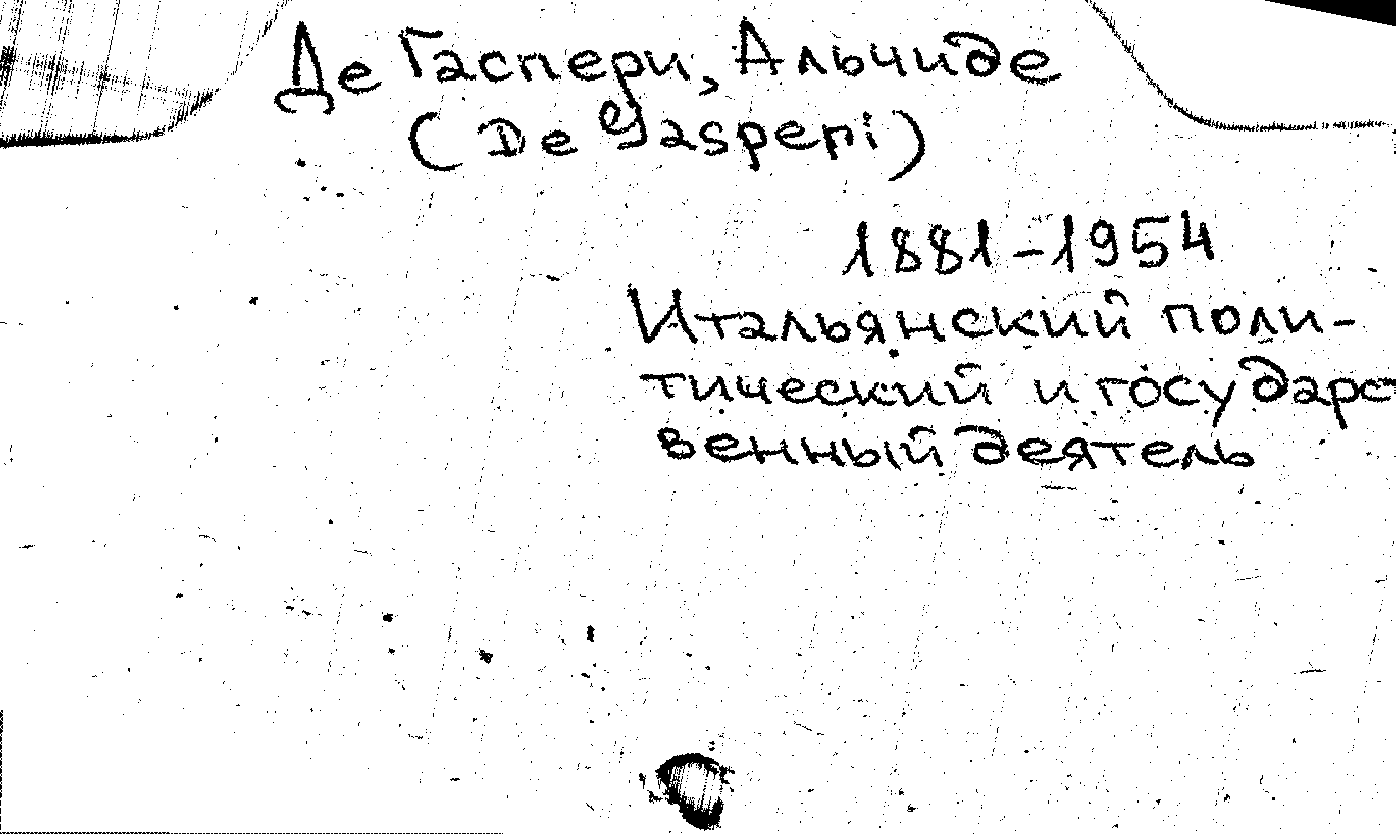 Де Гаспери, Альчиде
(De Gasperi)
1881-1954
Итальянский поли-
тический и государст
венный деятель